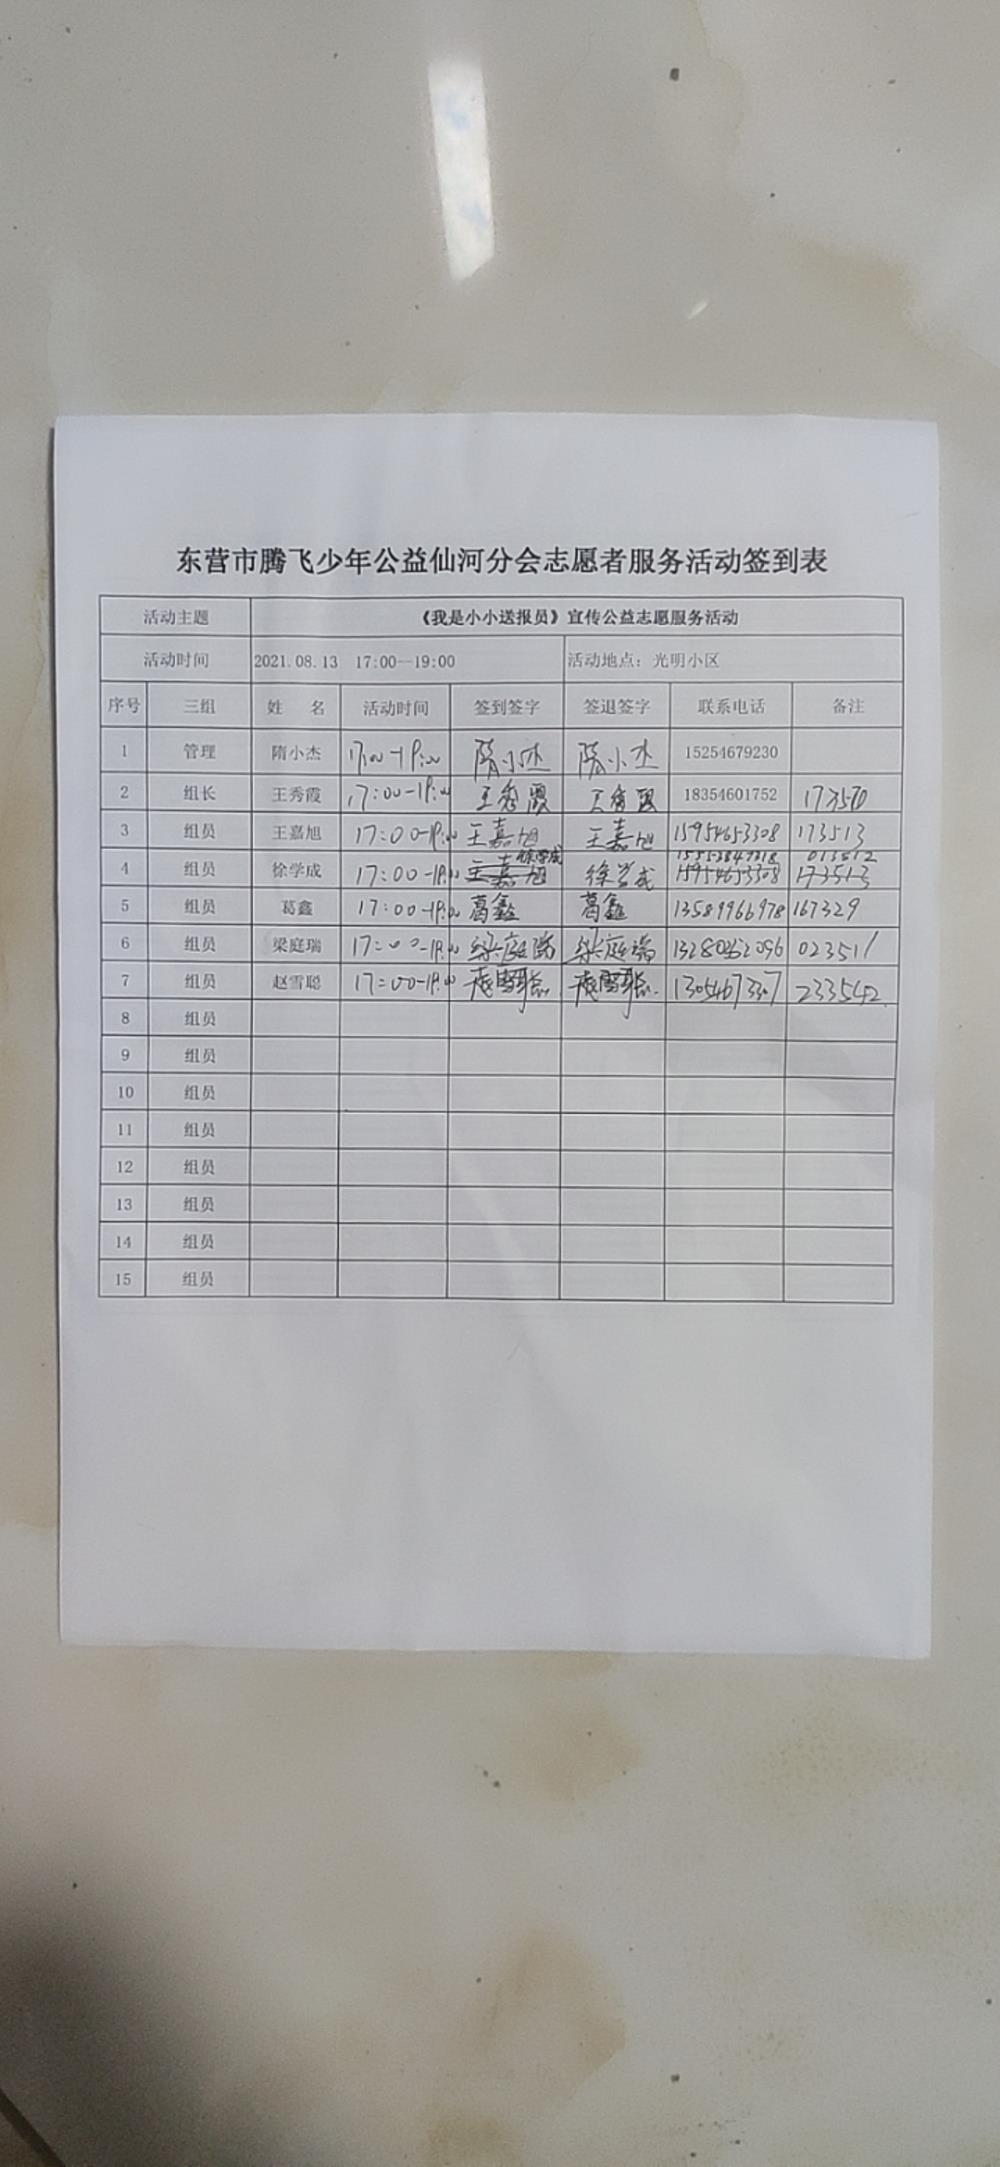 东营市腾飞少年公益仙河分会志愿者服务活动签到表
活动主题 《我是小小送报员》宣传公益志愿服务活动
活动时间 2021.08.13 17:00—19:00 活动地点：光明小区
序号 三组 姓 名 活动时间 签到签字 签退签字 联系电话 备注
1 管理 隋小杰 17:00-19:00 隋小杰 隋小杰 15254679230
2 组长 王秀霞 17:00-19:00 王秀霞 王秀霞 18354601752 173570
3 组员 王嘉旭 17:00-19:00 王嘉旭 王嘉旭 15954653308 173513
徐学成 013512
4 组员 徐学成 17:00-19:00 王嘉旭 徐学成 15954653308 173513
5 组员 葛鑫 17:00-19:00 葛鑫 葛鑫 13589966978 167329
6 组员 梁庭瑞 17:00-19:00 梁庭瑞 梁庭瑞 13280262096 023511
7 组员 赵雪聪 17:00-19:00 赵雪聪 赵雪聪 13054673307 233542
8 组员
9 组员
10 组员
11 组员
12 组员
13 组员
14 组员
15 组员